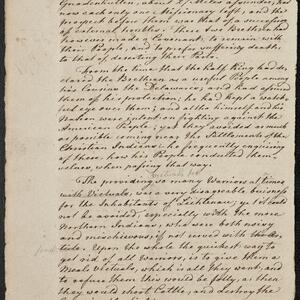 Gnadenhutten, and
now each only one Missionary left, and the
prospect before them was that of a succession
of external troubles. These two Brethren had
however made a Covenant, to remain with
their People, and to prefer suffering death,
to that of deserting their Post.
From the time that the half King had de-
clared the Brethren as a useful People among
his Cousins the Delawares, and had assured
them of his protection; he had kept a watch-
ful eye over them; and altho' he and his
Nation were intent on fighting against the
American People, yet they avoided as much
as possible coming near the Settlements of the
Christian Indians; he frequently enquiring
of these, how his People conducted them-
selves, when passing that way.
The providing so many Warriors at times
with Victuals, was a very disagreable business
for the Inhabitants of Lichtenau; yet it could
not be avoided, especially with the more
Northern Indians, who were both noisy
and mischievous, if not served with Vic-
tuals. Upon the whole the quickest way to
get rid of all Warriors, is to give them a
Meal Victuals, which is all they want, and
to refuse them this would be folly, as then
they would shoot Cattle, and destroy the